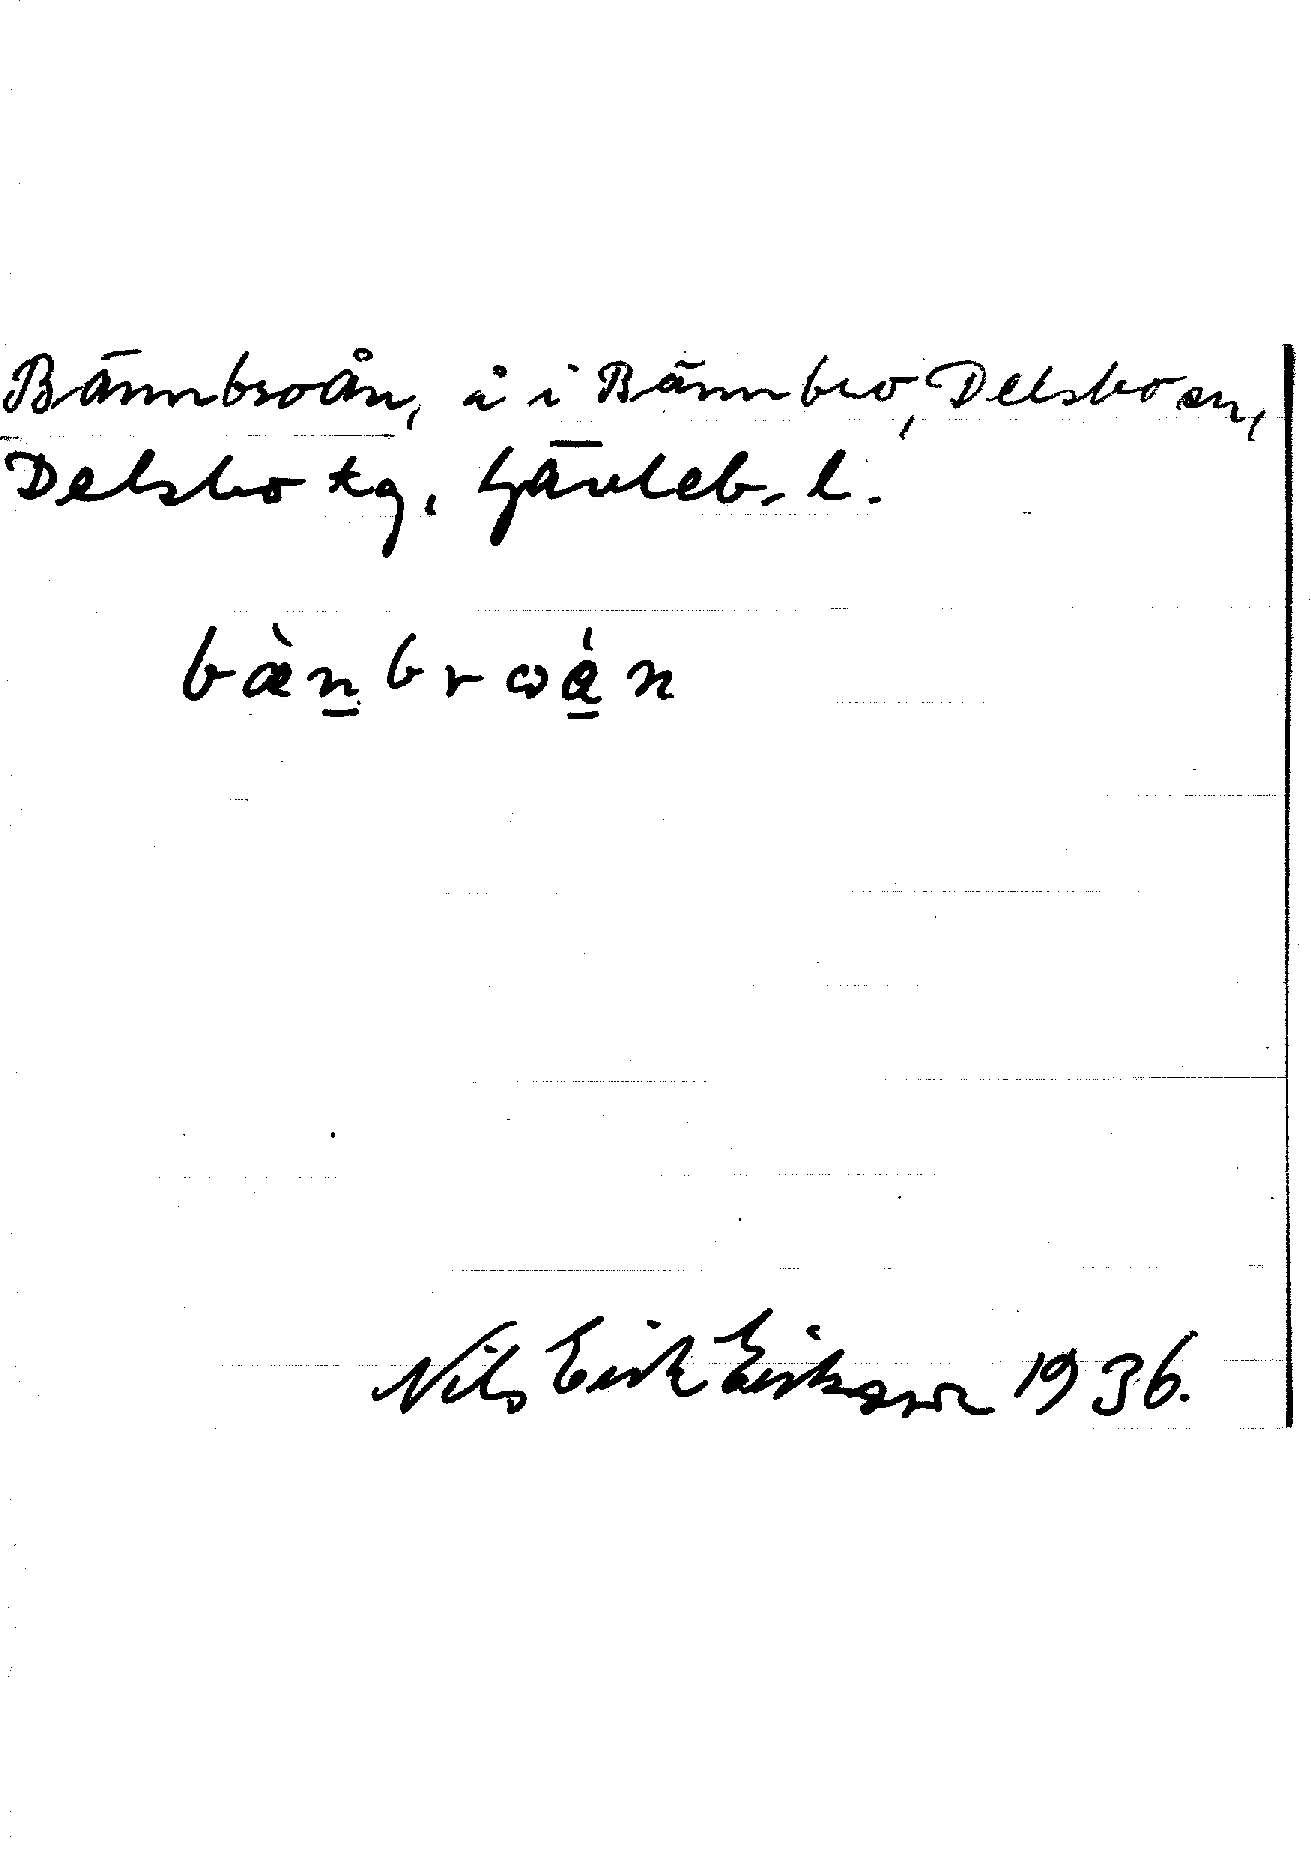 Bännbroån, å i Bännbro, Delsbo sn,
Delsbo tg, Gävleb. l.
bæ̀n̲brωǻ̲n
Nils Erik Eriksson 1936.